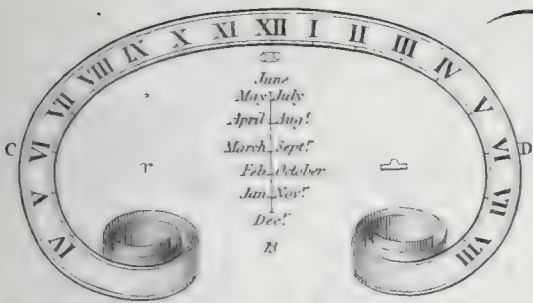 IV V VI VII VIII IX X XI XII I II III IV V VI VII VIII
♋
June
May July
April Augt
C D
March Septr
♈ ♎
Feb October
Jan Novr
Decr
B